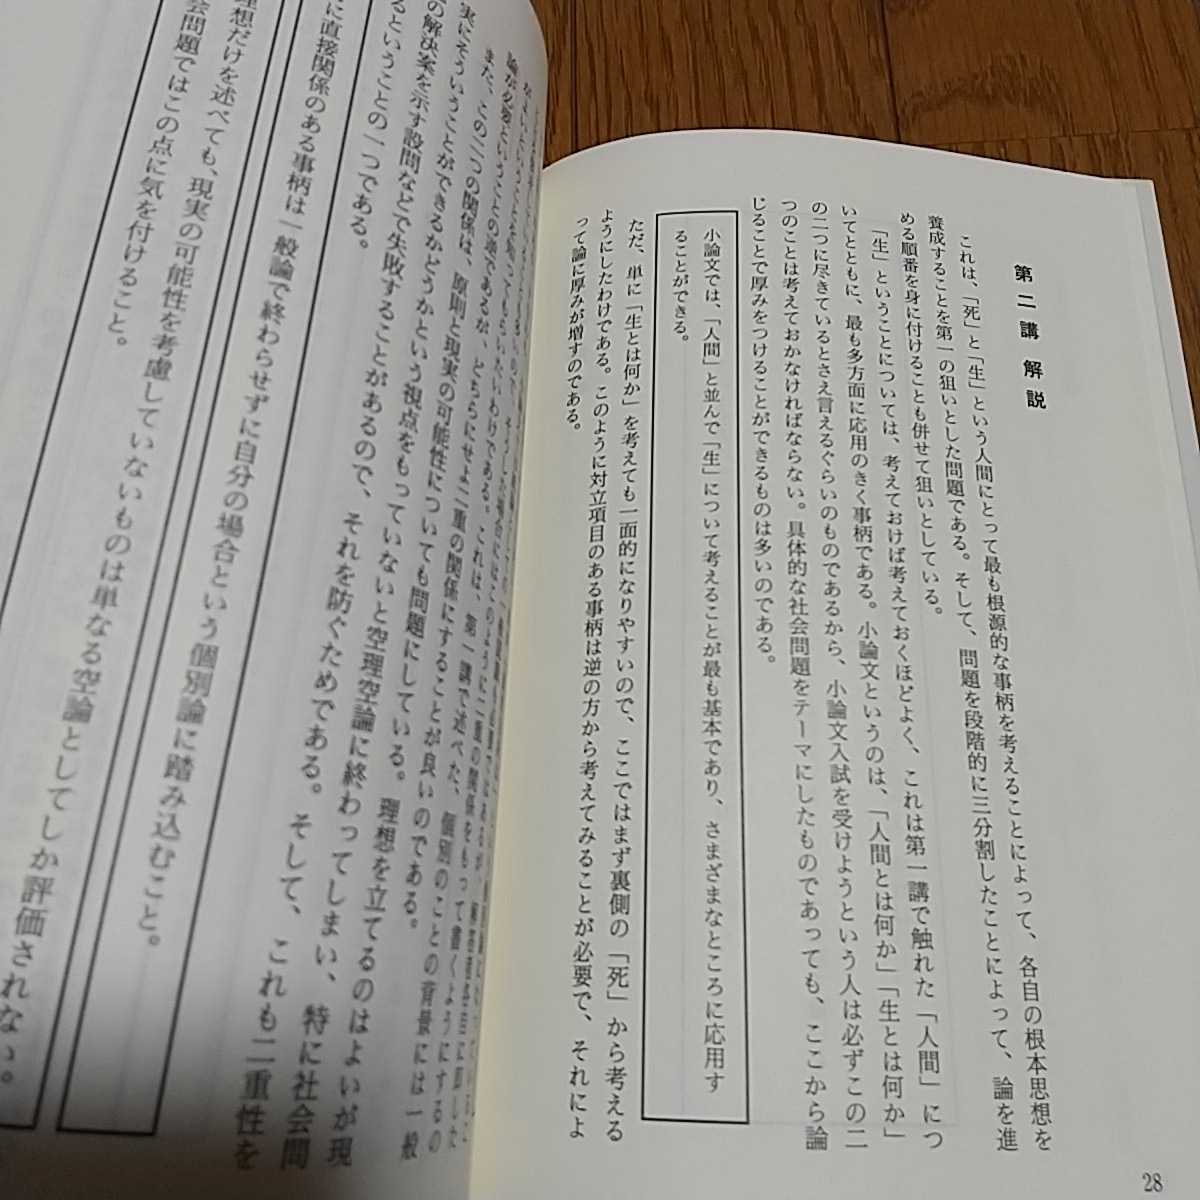 第二講 解説
これは、「死」と「生」という人間にとって最も根源的な事柄を考えることによって、各自の根本思想を
養成することを第一の狙いとした問題である。そして、問題を段階的に三分割したことによって、論を進
める順番を身に付けることも併せて狙いとしている。
「生」ということについては、考えておけば考えておくほどよく、これは第一講で触れた「人間」につ
いてとともに、最も多方面に応用のきく事柄である。小論文というのは、「人間とは何か」「生とは何か」
の二つに尽きているとさえ言えるぐらいのものであるから、小論文入試を受けようという人は必ずこの二
つのことは考えておかなければならない。具体的な社会問題をテーマにしたものであっても、ここから論
じることで厚みをつけることができるものは多いのである。
小論文では、「人間」と並んで「生」について考えることが最も基本であり、さまざまなところに応用す
ることができる。
ただ、単に「生とは何か」を考えても一面的になりやすいので、ここではまず裏側の「死」から考える
ようにしたわけである。このように対立項目のある事柄は逆の方から考えてみることが必要で、それによ
って論に厚みが増すのである。
28
論が必要ということの逆であるが、どちらにせよ二重の関係をもって書くように
また、この二つの関係は、原則と現実の可能性についても問題にしている。理想を立てるのはよいが現
実にそういうことができるかどうかという視点をもっていないと空理空論に終わってしまい、特に社会問
の解決案を示す設問などで失敗することがあるので、それを防ぐためである。そして、これも二重性を
るということの一つである。
に直接関係のある事柄は一般論で終わらせずに自分の場合という個別論に踏み込むこと。
理想だけを述べても、現実の可能性を考慮していないものは単なる空論としてしか評価されない。
会問題ではこの点に気を付けること。